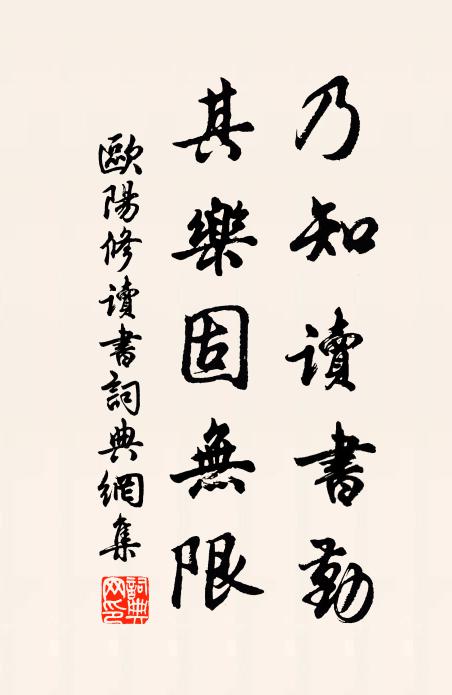 乃知讀書勤
其樂固無限
歐陽修讀書詞典網集
詞典
网印